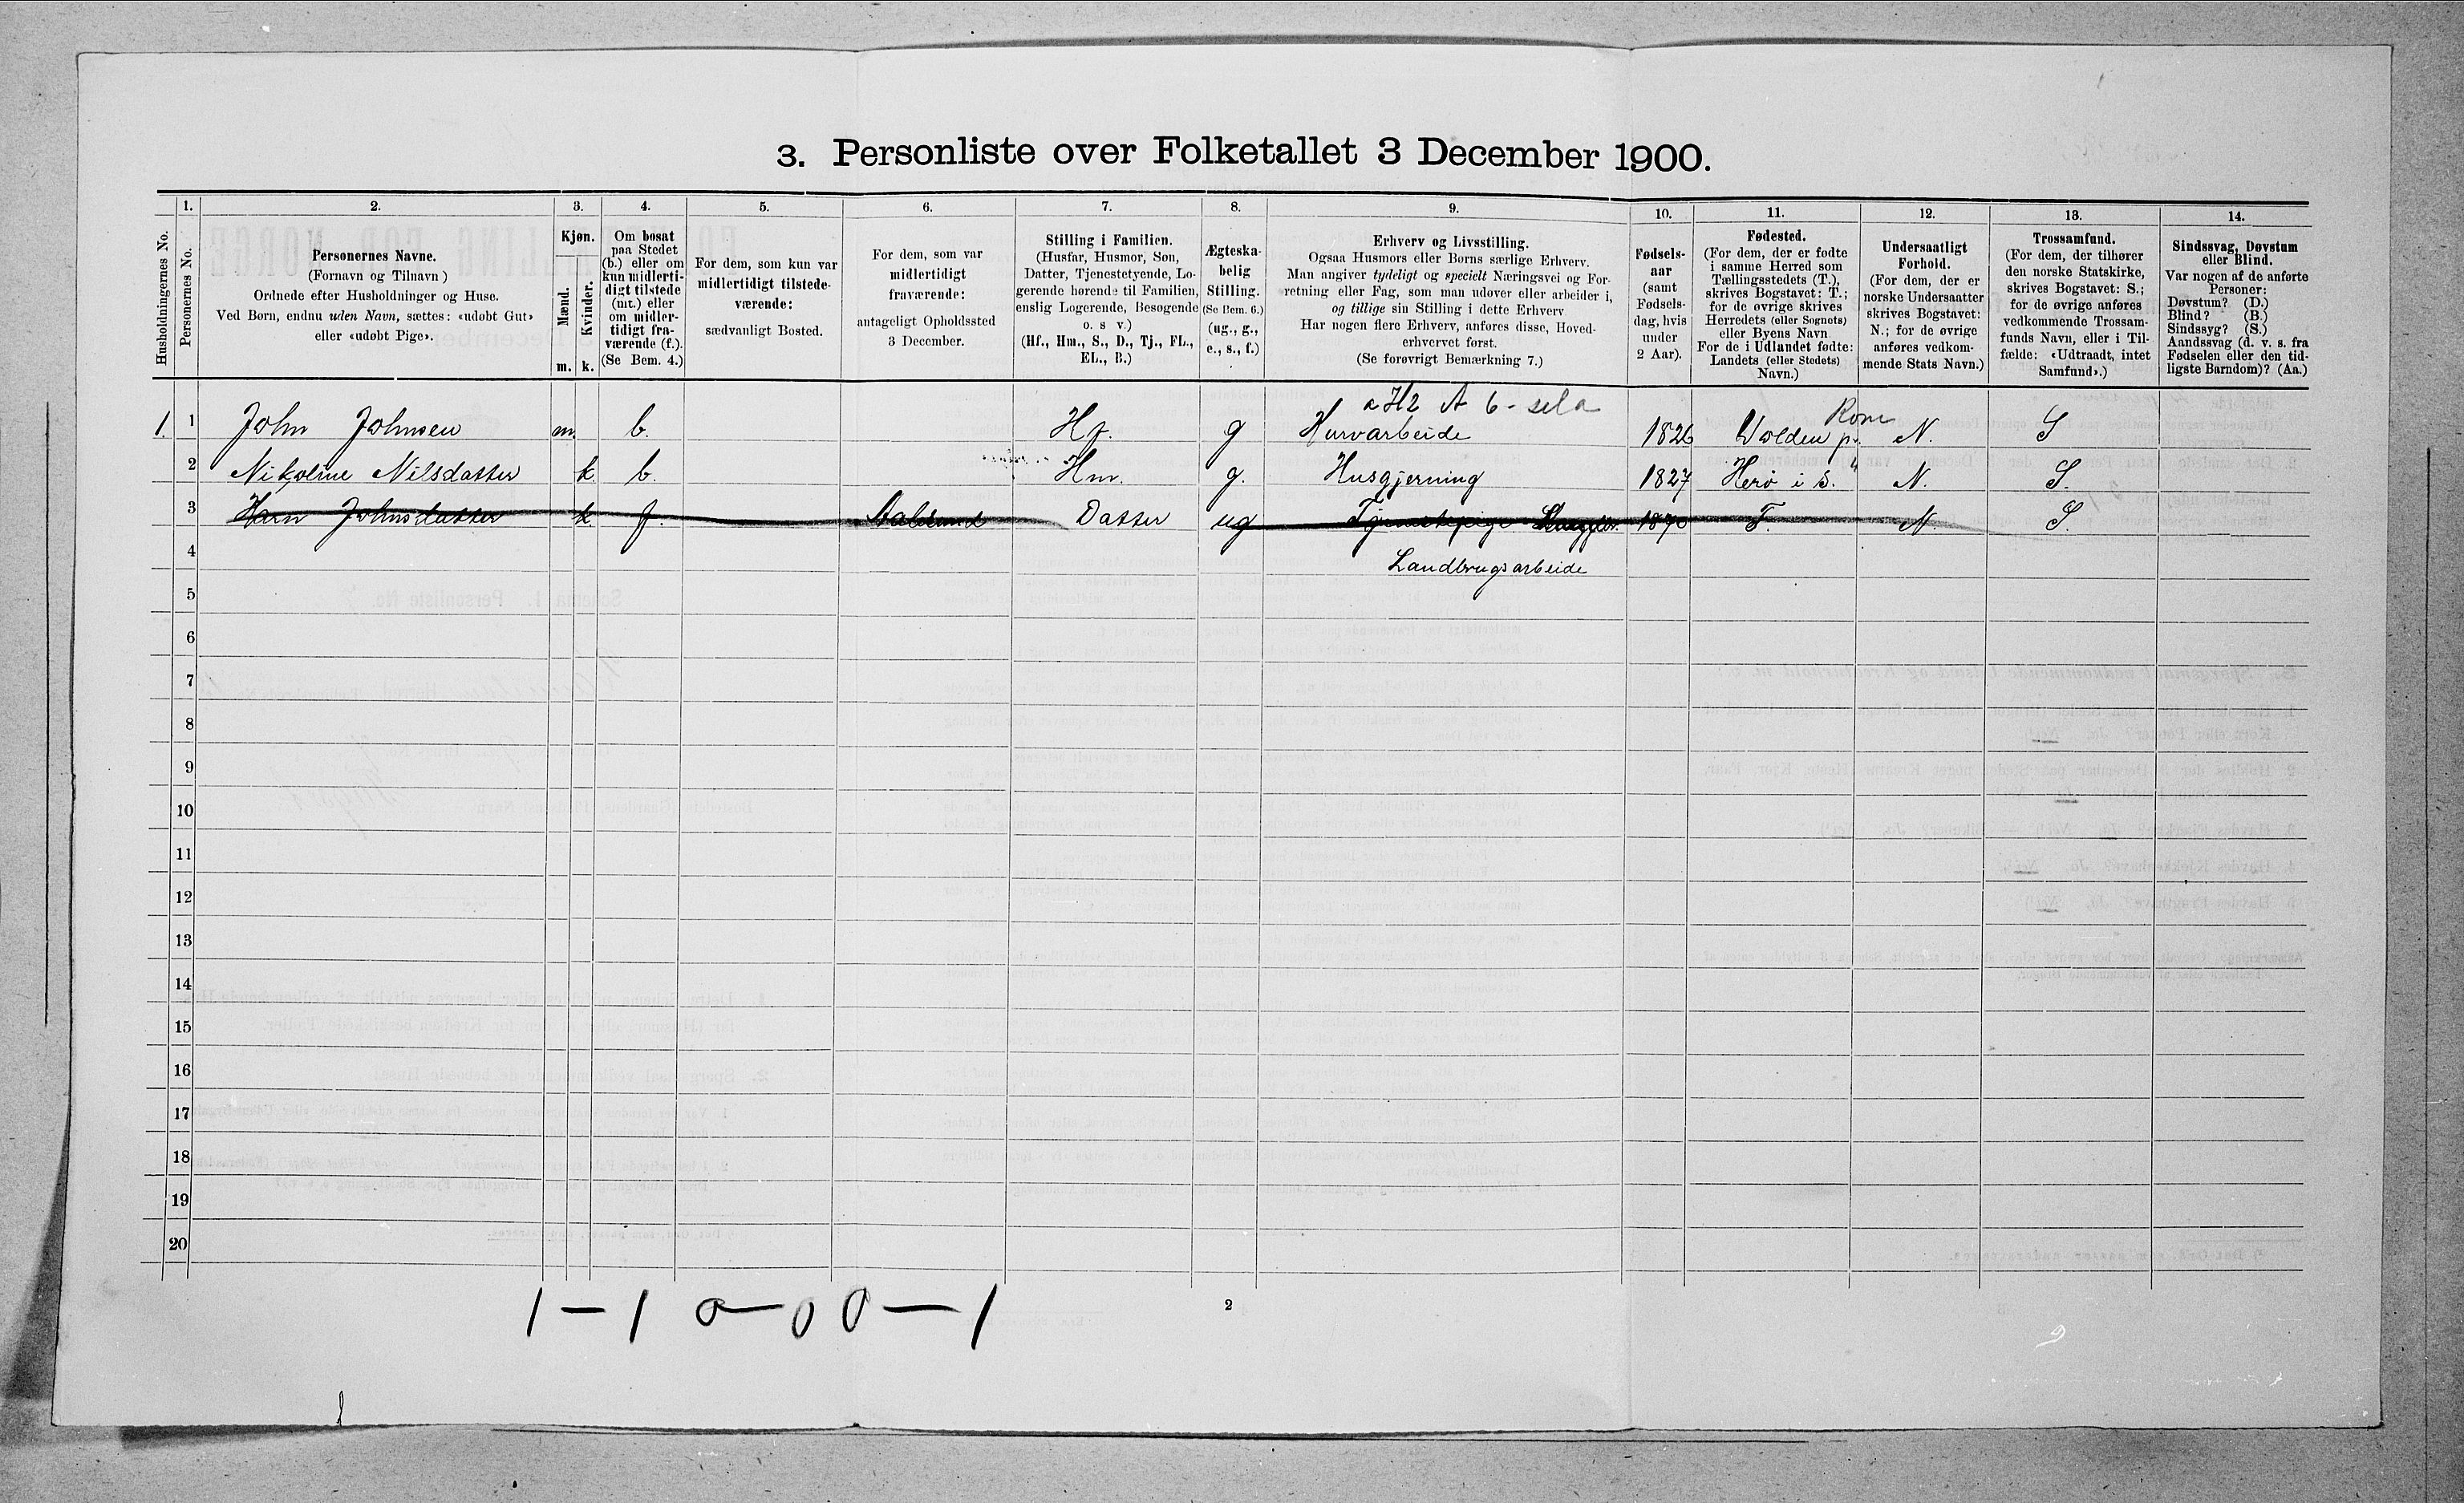 3. Personliste over Folketallet 3 December 1900.
Husholdningernes No.
1.
Personernes No.
2.
Personernes Navne.
(Fornavn og Tilnavn )
Ordnede efter Husholdninger og Huse.
Ved Børn, endnu uden Navn, sættes: «udøbt Gut»
eller «udøbt Pige».
3.
Kjøn.
Mænd.
Kvinder.
m. k.
4.
Om bosat
paa Stedet
(b.) eller om
kun midlerti-
digt tilstede
(mt.) eller
om midler-
tidigt fra-
værende (f.).
(Se Bem. 4.)
5.
For dem, som kun var
midlertidigt tilstede-
værende:
sædvanligt Bosted.
6.
For dem, som var
midlertidigt
fraværende:
antageligt Opholdssted
3 December.
7.
Stilling i Familien.
(Husfar, Husmor, Søn,
Datter, Tjenestetyende, Lo-
gerende hørende til Familien,
enslig Logerende, Besøgende
o. s v.)
(Hf., Hm., S., D., Tj., FL.,
EL., B.)
8.
Ægteska-
belig
Stilling.
(Se Bem. 6.)
(ug., g.,
e., s., f.)
9.
Erhverv og Livsstilling.
Ogsaa Husmors eller Børns særlige Erhverv.
Man angiver tydeligt og specielt Næringsvei og For-
retning eller Fag, som man udøver eller arbeider i,
og tillige sin Stilling i dette Erhverv
Har nogen flere Erhverv, anføres disse, Hoved-
erhvervet først.
(Se forøvrigt Bemærkning 7.)
10.
Fødsels-
aar
(samt
Fødsels-
dag, hvis
under
2 Aar).
11.
Fødested.
(For dem, der er fødte
i samme Herred som
Tællingsstedets (T.),
skrives Bogstavet: T.;
for de øvrige skrives
Herredets (eller Sognets)
eller Byens Navn
For de i Udlandet fødte:
Landets (eller Stedets)
Navn.)
12.
Undersaatligt
Forhold.
(For dem, der er
norske Undersaatter
skrives Bogstavet:
N.; for de øvrige
anføres vedkom-
mende Stats Navn.)
13.
Trossamfund.
(For dem, der tilhører
den norske Statskirke,
skrives Bogstavet: S.;
for de øvrige anføres
vedkommende Trossam-
funds Navn, eller i Til-
fælde: «Udtraadt, intet
Samfund».)
14.
Sindssvag, Døvstum
eller Blind.
Var nogen af de anførte
Personer:
Døvstum? (D.)
Blind? (B.)
Sindssyg? (S.)
Aandssvag (d. v. s. fra
Fødselen eller den tid-
ligste Barndom)? (Aa.)
1. 1 John Johnsen m. b. Hf. g Kurvarbeide 1826 Volden N. S
2 Nikoline Nilsdatter k b. Hm. g. Husgjerning 1827 Herø i S. N. S.
3 Johnsdatter k f. Aalesund Datter ug Tjenestepige 1870 T. N. S.
4 Landbrugsarbeide
5
6
7
8
9
10
11
12
13
14
15
16
17
18
19
20
1 – 1 0 – 0 0 – 1
2